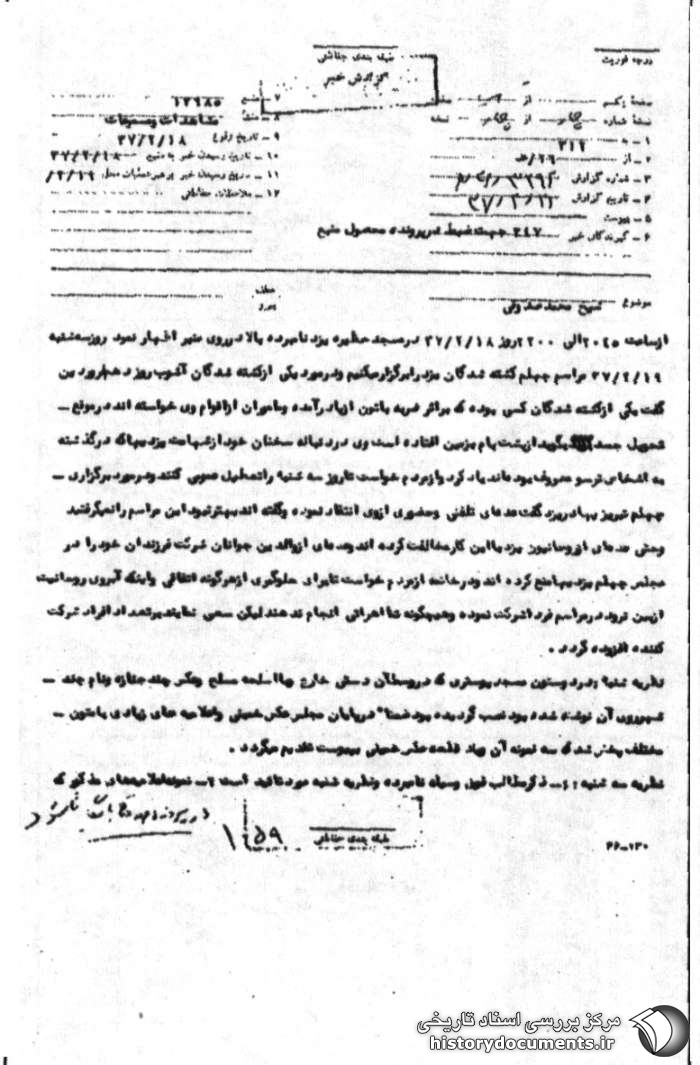 درجه فوریت
طبقه بندی حفاظتی
گزارش خبر
صفحه یکم از صفحه
نسخه شماره چهار از چهار نسخه
۱ - به ۳۱۲
۲ - از
۳ - شماره گزارش
۴ - تاریخ گزارش
۵ - پیوست
۶ - گیرندگان خبر ۳۴۷ جهت ضبط در پرونده محصول منبع
۷ - منبع ۱۲۹۸۵
۸ - منشأ مشاهدات و مسموعات
۹ - تاریخ وقوع ۳۷/۲/۱۸
۱۰ - تاریخ رسیدن خبر به منبع ۳۷/۲/۱۸
۱۱ - تاریخ رسیدن خبر به رهبر عملیات محل ۲/۱۹/
۱۲ - ملاحظات حفاظتی
موضوع شیخ محمد صدوقی
عطف
پیرو
از ساعت ۲۰۴۵ الی ۲۲۰۰ روز ۳۷/۲/۱۸ در مسجد حظیره یزد نامبرده بالا در روی منبر اظهار نمود روز سه شنبه
۳۷/۲/۱۹ مراسم چهلم کشته شدگان یزد را برگزار میکنیم و در مورد یکی از کشته شدگان آشوب روز دهم فروردین
گفت یکی از کشته شدگان کسی بوده که بر اثر ضربه باتون از پا در آمده و مامورین از اقوام وی خواسته اند در موقع -
تحویل جسد بگوید از پشت بام بزمین افتاده است وی در دنباله سخنان خود از شهامت یزدیها که در گذشته
به اشخاص ترسو معروف بوده اند یاد کرد و از مردم خواست تا روز سه شنبه را تعطیل عمومی کنند و در مورد برگزاری -
چهلم تبریز بیاد در یزد گفت عده ای تلفنی و حضوری از وی انتقاد نموده و گفته اند بهتر نبود این مراسم را نمیگرفتید
و حتی عده ای از روحانیون یزد با این کار مخالفت کرده اند و عده ای از والدین جوانان شرکت فرزندان خود را در
مجلس چهلم یزدیها منع کرده اند و در خاتمه از مردم خواست تا برای جلوگیری از هرگونه اتفاقی و اینکه آبروی روحانیت
از بین نرود در مراسم فردا شرکت نموده و هیچگونه تظاهراتی انجام ندهند لیکن سعی نمایند بر تعداد افراد شرکت
کننده افزوده گردد .
نظریه شنبه : در دو ستون مسجد پوستری که در وسط آن دستی خارج با اسلحه مسلح و عکس چند جنازه و نام چند -
شهر روی آن نوشته شده بود نصب گردیده بود ضمنا" در پایان مجلس عکس خمینی و اعلامیه های زیادی با متون -
مختلف پخش شد که سه نمونه آن و یک قطعه عکس خمینی به پیوست تقدیم میگردد .
نظریه سه شنبه : ۱ - ذکر مطالب فوق وسیله نامبرده و نظریه شنبه مورد تائید است ۲ - نمونه اعلامیه های مذکور که
طبقه بندی حفاظتی
۱۲۵۹
۳۶-۱۳۰
مرکز بررسی اسناد تاریخی
historydocuments.ir